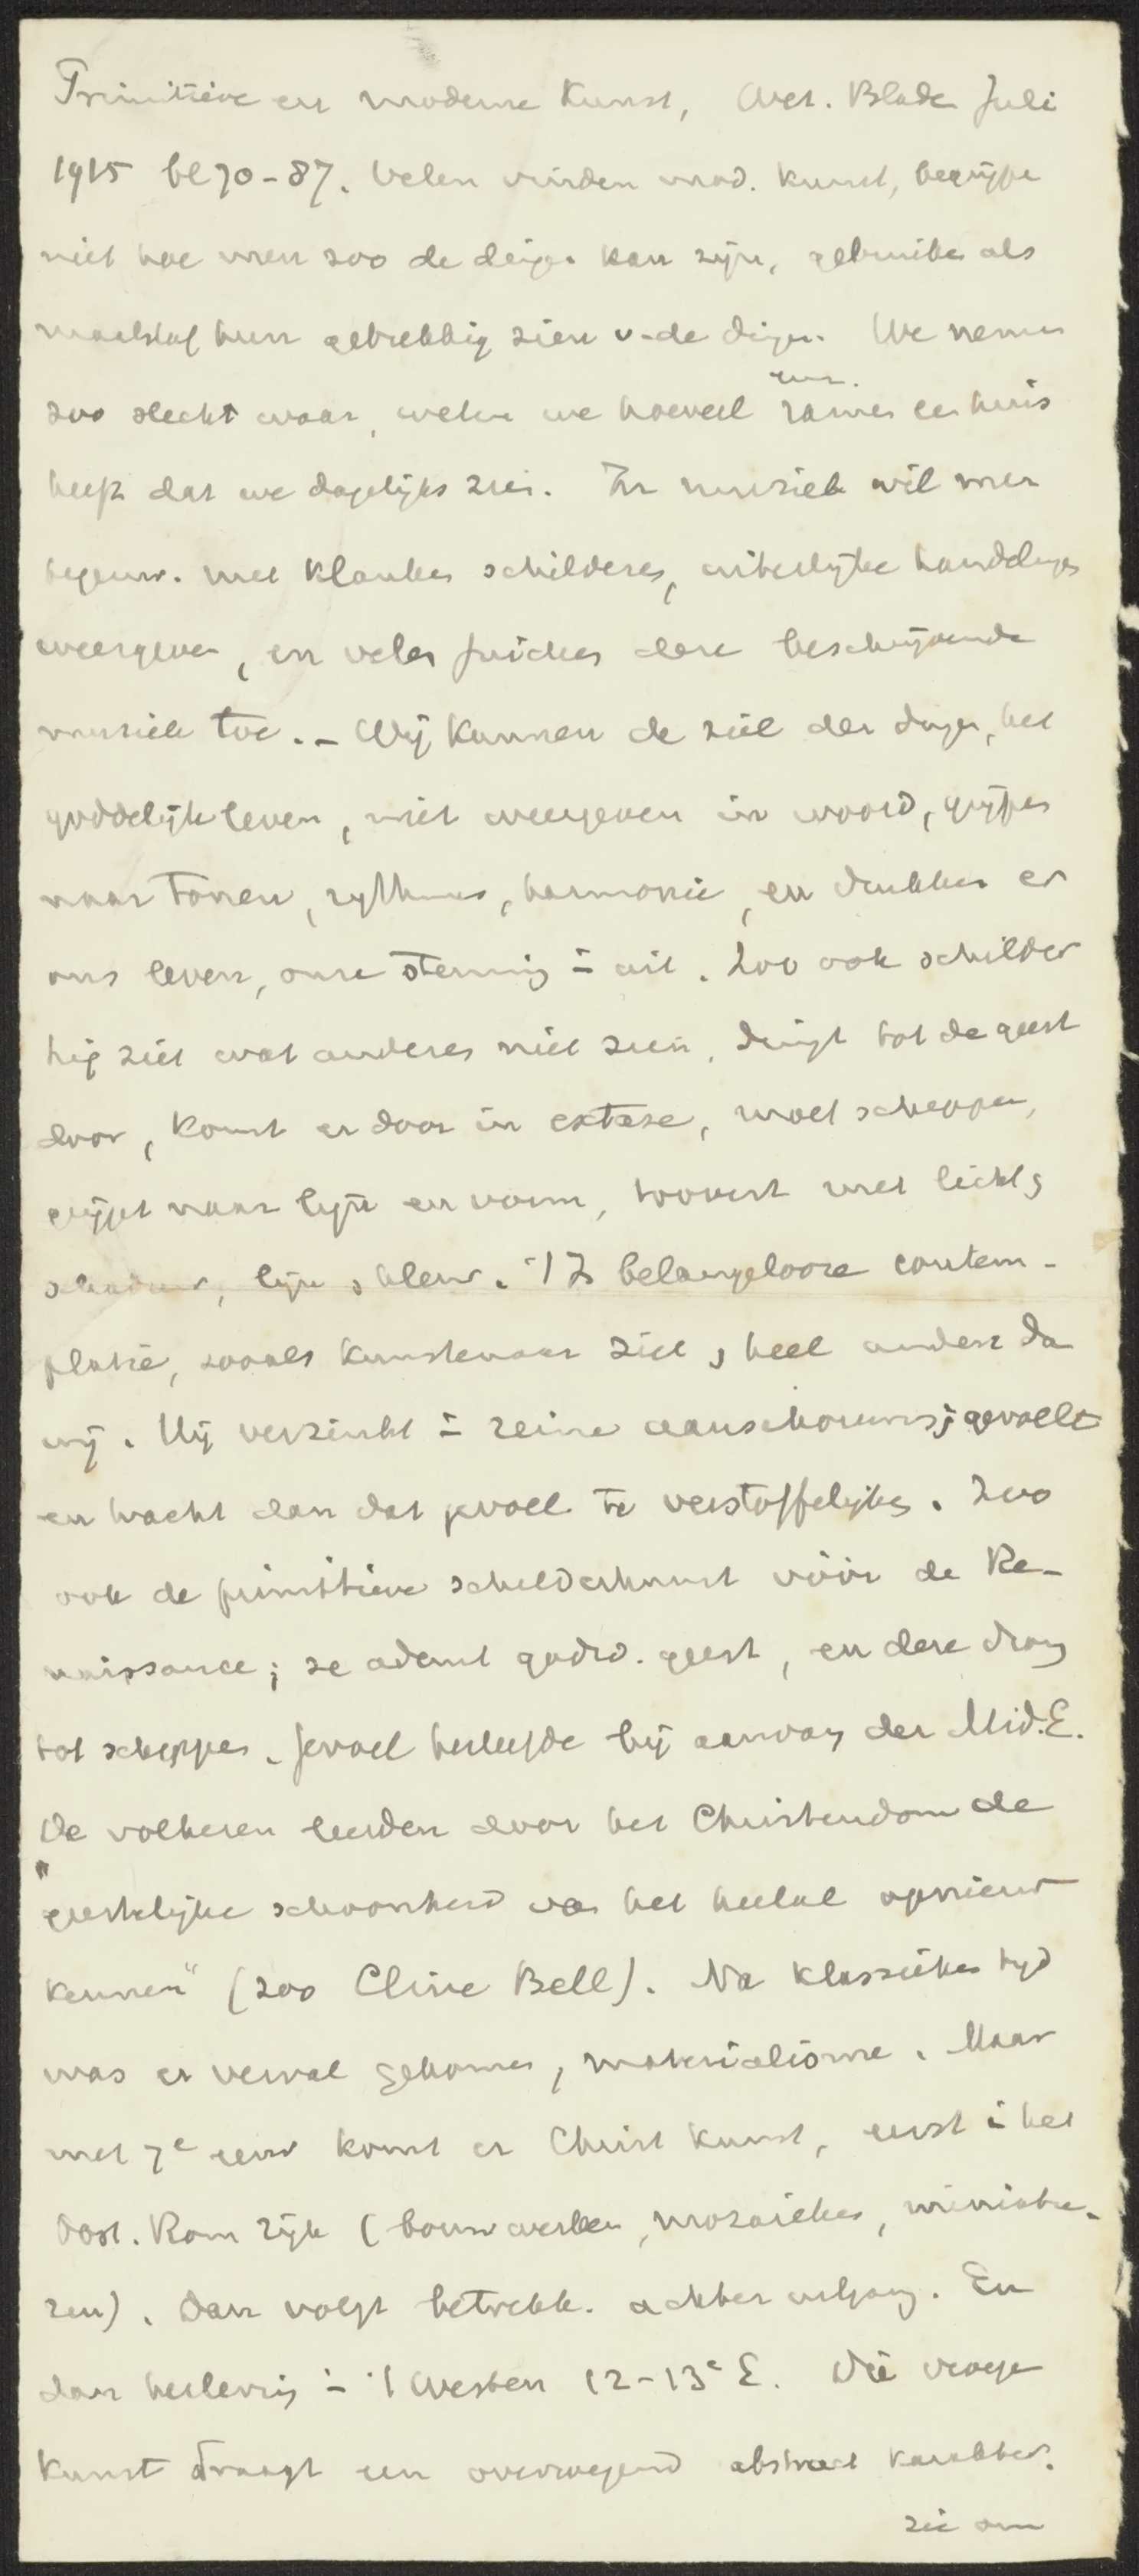 Primitieve en moderne Kunst, Wet. Blade Juli
1915 bl 70-87. Velen vinden mod. kunst, begrijpe
niet hoe men zoo de dinge kan zijn, gebruike als
maatstaf hun gebrekkig zien v. de dinge. We nemen
zoo slecht waar, weten we hoeveel ramen een huis
heeft dat we dagelijks zien. In muziek wil men
tegenw. met klanken schilderen, uiterlijke handelingen
weergeven, en velen juichen deze beschrijvende
muziek toe. – Wij kunnen de ziel der dingen, het
goddelijk leven, niet weergeven in woord, grijpen
naar tonen, rythmus, harmonie, en drukken er
ons leven, onze stemming – uit. Zoo ook schilder
hij ziet wat anderen niet zien, dringt tot de geest
door, komt er door in extase, moet scheppen,
grijpt naar lijn en vorm, toovert met licht,
schaduw, lijn, kleur. 't Is belangelooze contem-
platie, zooals kunstenaar ziet, heel anders da
wij. Hij verzinkt – reine aanschouwing; gevoelt
en tracht dan dat gevoel te verstoffelijken. Zoo
ook de primitieve schilderkunst vóór de Re-
naissance; ze ademt godsd. geest, en deze drang
tot scheppen. Gevoel herleefde bij aanvang der Mid.E.
De volkeren leerden door het Christendom de
"geestelijke schoonheid van het heelal opnieuw
kennen" (zoo Clive Bell). Na klassieken tijd
was er verval gekomen, materialisme. Maar
met 7e eeuw komt er Christ kunst, eerst i het
Oost. Rom rijk (bouwwerken, mozaieken, miniatu-
ren). Dan volgt betrekk. achteruitgang. En
dan herleving – 't Westen 12-13e E. Die vroege
kunst draagt een overwegend abstract karakter.
zie om